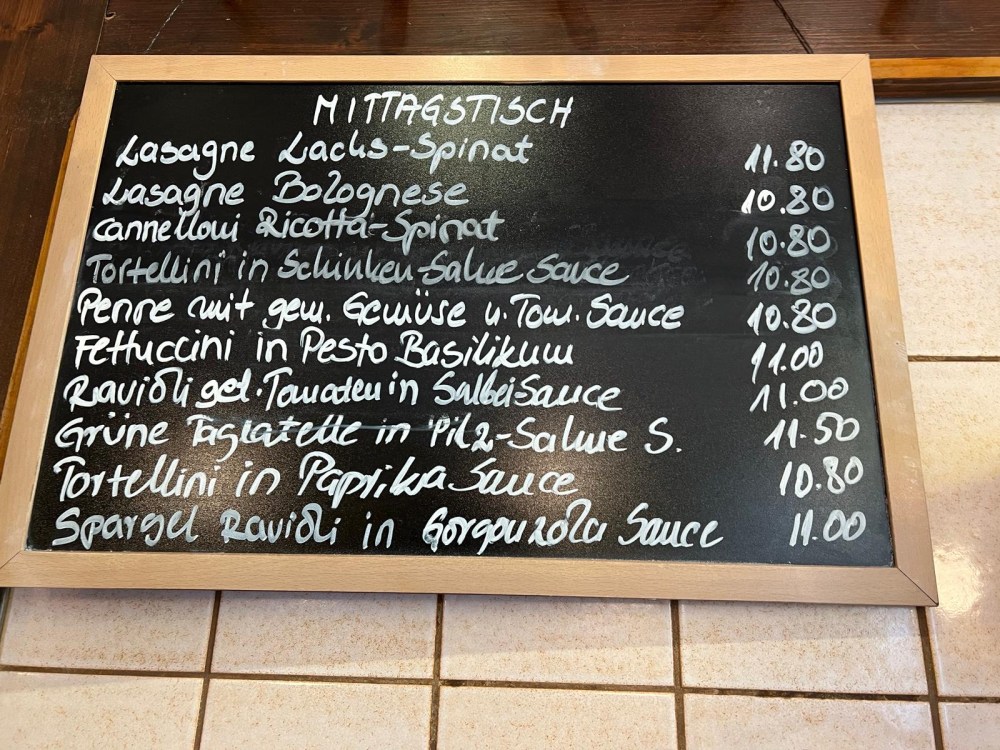 MITTAGSTISCH
Lasagne Lachs-Spinat 11.80
Lasagne Bolognese 10.80
Cannelloni Ricotta-Spinat 10.80
Tortellini in Schinken-Sahne Sauce 10.80
Penne mit gem. Gemüse u. Tom. Sauce 10.80
Fettuccini in Pesto Basilikum 11.00
Ravioli gef. Tomaten in Salbei Sauce 11.00
Grüne Tagliatelle in Pilz-Sahne S. 11.50
Tortellini in Paprika Sauce 10.80
Spargel Ravioli in Gorgonzola Sauce 11.00